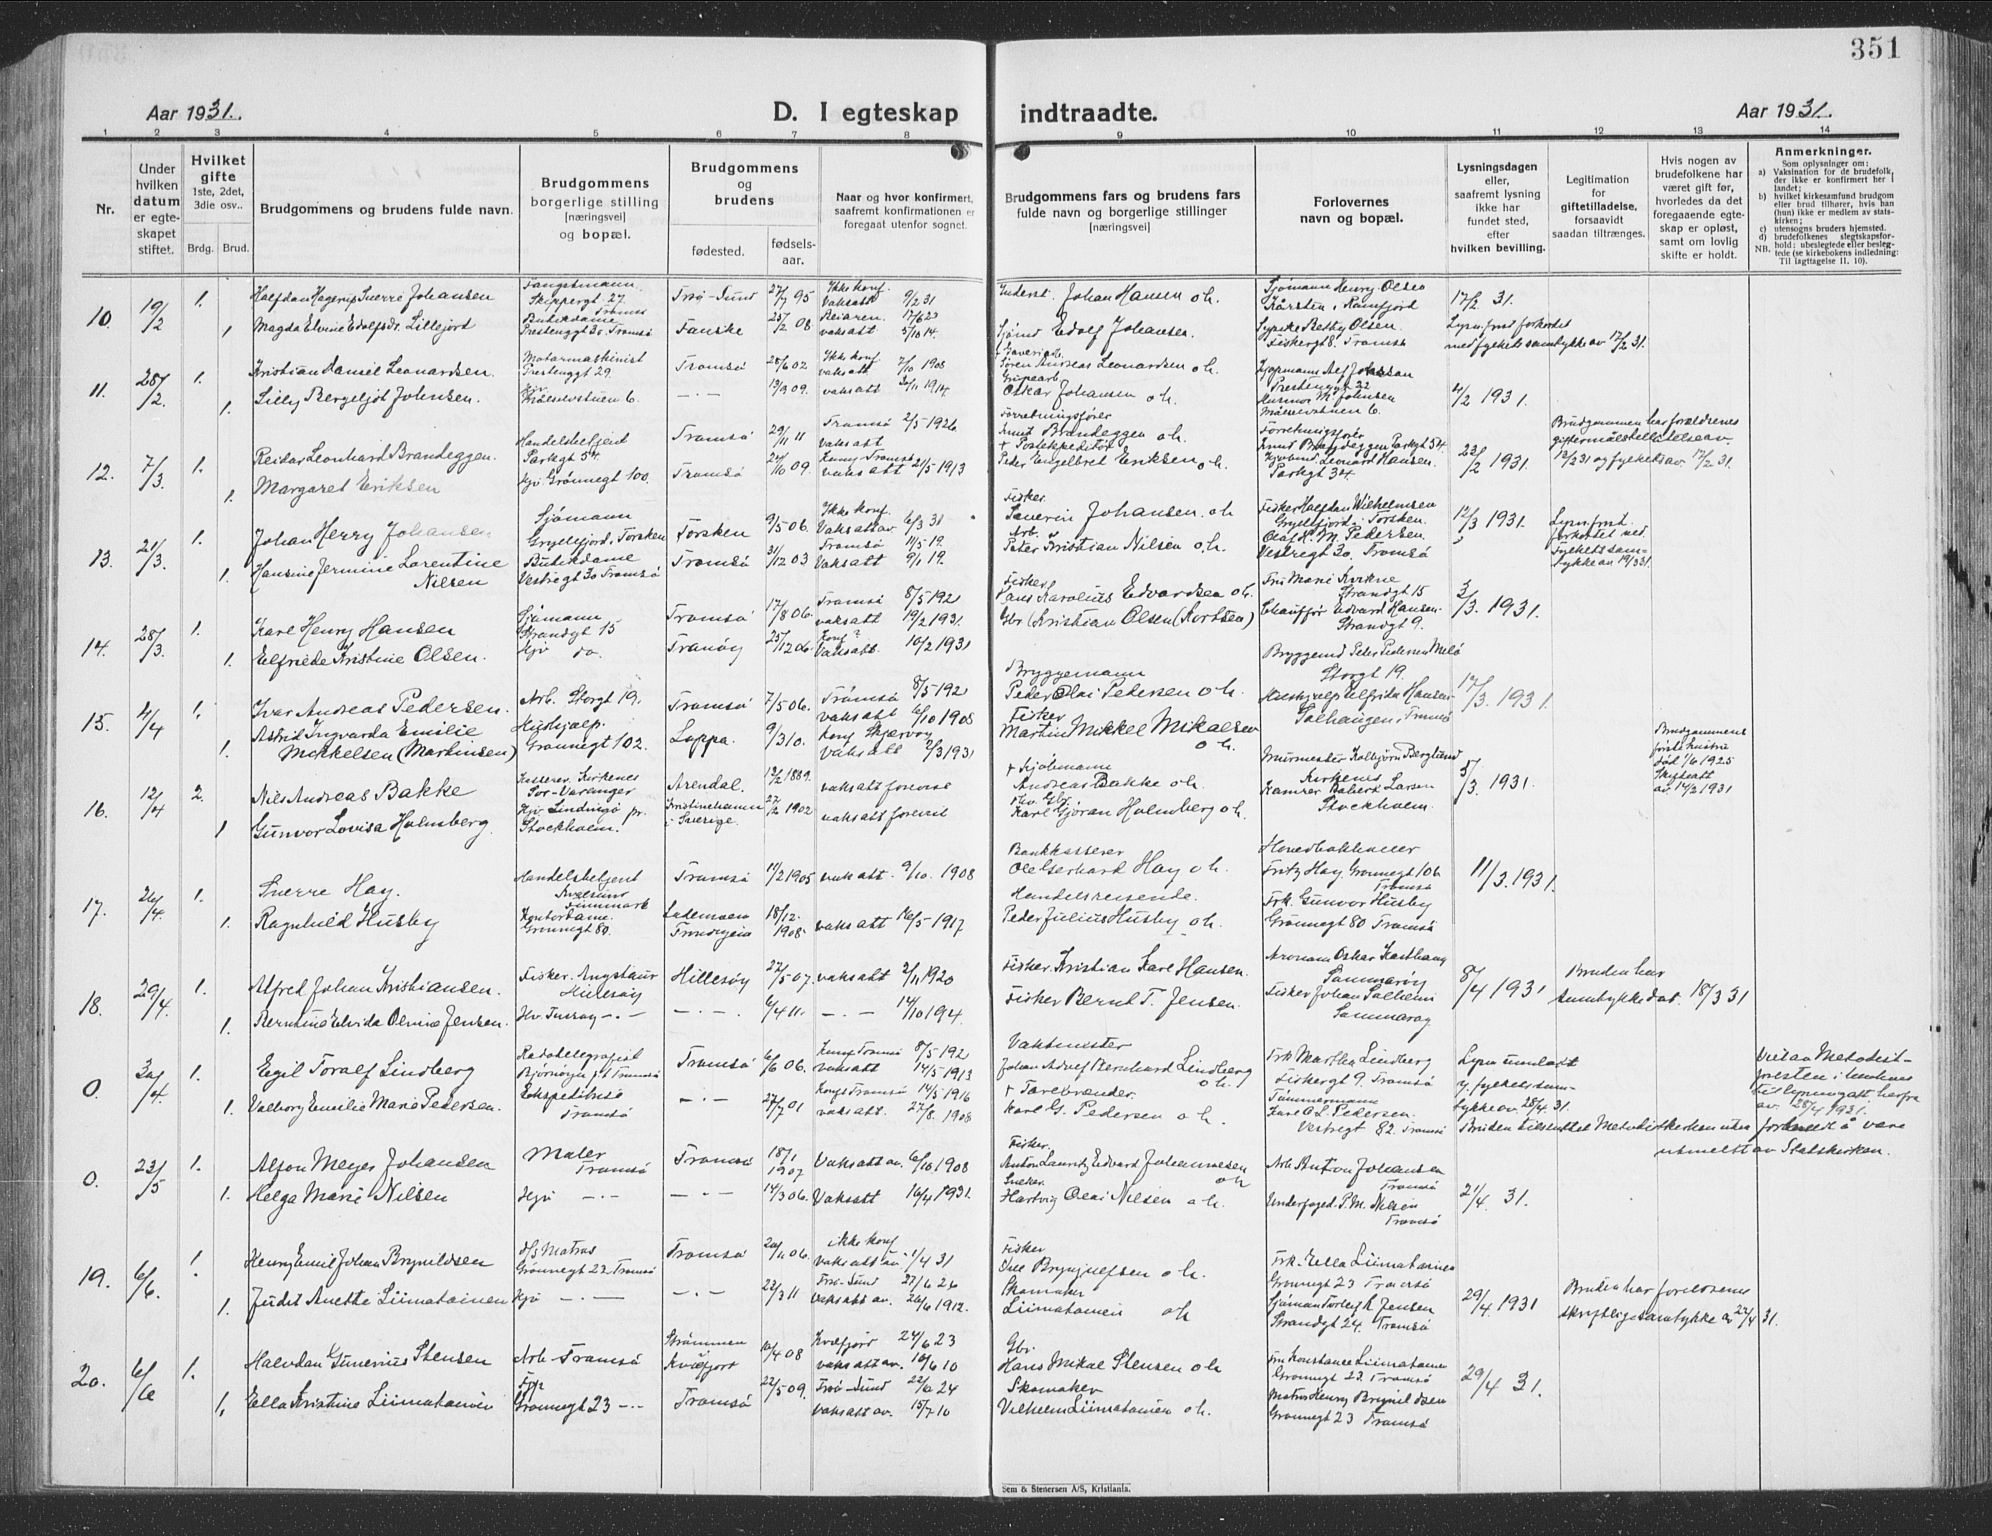 351
Aar 1931.
D. I egteskap indtraadte.
Aar 1931.
1 2 3 4 5 6 7 8 9 10 11 12 13 14
Nr.
Under hvilken datum er egteskapet stiftet.
Hvilket gifte
1ste, 2det, 3die osv..
Brdg. Brud.
Brudgommens og brudens fulde navn.
Brudgommens borgerlige stilling [næringsvei] og bopæl.
Brudgommens og brudens
fødested.
fødselsaar.
Naar og hvor konfirmert, saafremt konfirmationen er foregaat utenfor sognet.
Brudgommens fars og brudens fars fulde navn og borgerlige stillinger [næringsvei]
Forlovernes navn og bopæl.
Lysningsdagen eller, saafremt lysning ikke har fundet sted, efter hvilken bevilling.
Legitimation for giftetilladelse, forsaavidt saadan tiltrænges.
Hvis nogen av brudefolkene har været gift før, hvorledes da det foregaaende egteskap er opløst, samt om lovlig skifte er holdt.
Anmerkninger.
Som oplysninger om:
a) Vaksination for de brudefolk, der ikke er konfirmert her i landet;
b) hvilket kirkesamfund brudgom eller brud tilhører, hvis han (hun) ikke er medlem av statskirken;
c) utensogns bruders hjemsted.
d) brudefolkenes slegtskapsforhold; ubeslegtede eller beslegtede (se kirkebokens indledning: NB. Til Iagttagelse II, 10).
10. 19/2 1. Halfdan Hagerup Sverre Johansen Fangstmann Skippergt 27. Tromsø Trø-Sund 27/7 95 Ikke konf. Vaksatt 9/2 31 Johan Hansen o.h. Sjømann Henry Olsen Kårsten i Ramfjord 17/2 31.
1 Magda Elvine Edolfsdr. Lillejord Butikdame Prestenggt 3c Tromsø Fauske 25/2 08 Beiaren. 17/6 23 vaksatt 5/10 14. Edolf Johansen. Syerske Betsy Olsen. Fiskergt 8. Tromsø Lysn. frist forkortet med fylkets samtykke av 17/2 31.
11. 28/2 1. Kristian Daniel Leonardsen. Motormaskinist Prestenggt 29. Tromsø 28/6 02 Ikke konf vaksatt 7/10 1908 Søren Andreas Leonardsen o.h. Prestenggt 22 4/2 1931.
1. Lilly Bergeljot Johnsen. Hjv. Målselvstuen 6. -.- 13/3 09. vaksatt 1914. Oskar Johansen o.h. Målselvstuen 6.
12. 7/3 1. Reidar Leonhard Brandeggen. Handelsbetjent Parkgt 54. Tromsø 29/11 11 Tromsø 2/5 1926 vaksatt Forretningsfører Knut Brandeggen o.h. Forretningsfører Knut Brandeggen Parkgt 54. 22/2 1931. Brudgommen har foreldrenes giftermålstillatelse av 12/2 31 og fylkets av 17/2 31.
1. Margaret Eriksen Hjv. Grønnegt 100. Tromsø 09. Konf. Tromsø vaksatt 21/5 1913 + Postekspeditør Peder Engelbret Eriksen o.h. Leonard Hansen. Parkgt 34.
13. 21/3 1. Johan Herry Johansen Sjømann Gryllefjord, Torsken Torsken 9/5 06. Ikke konf. Vaksatt av 6/3 31 Fisker. Severin Johansen. o.h Fisker Halfdan Wilhelmsen Gryllefjord i Torsken. 12/3 1931. Lysn. frist. forkortet ved. Fylkets samtykke av 19/3 31.
1. Hansine Jermine Larentine Nilsen Butikdame Vestregt 30 Tromsø Tromsø 31/12 03 Tromsø 11/5 19. Vaksatt 9/1 19. Arb. Peter Kristian Nilsen o.h. Olaf H. M. Pedersen. Vestregt 30. Tromsø
14. 28/3 1. Karl Henry Hansen Sjømann Strandgt 15 Tromsø 17/8 06. Tromsø 8/5 192 vaksatt 19/2 1931. Fisker Hans Karolius Edvardsen o.h. Fru Marie Kvikne Strandgt 15 3/3. 1931.
1. Elfriede Kristine Olsen. Hjv do. Tranøy 25/12 06. Konf? Vaksatt. 10/2 1931 Gbr (Kristian Olsen (Kortsen) Chauffør Edvard Hansen. Strandgt 9.
15. 4/4 1. Ivar Andreas Pedersen. Arb. Storgt 19. Tromsø 7/5 06. Tromsø 8/5 192 vaksatt 6/10 1908 Bryggemann Peder Olai Pedersen o.h. Bryggemd Peter Pedersen Storgt 19. 17/3. 1931.
1. Astrid Ingvarda Emilie Mikkelsen (Martinsen) Hushjelp. Grønnegt 102. Loppa. 9/3 10. Konf Skjervøy vaksatt 2/3 1931 Fisker Martin Mikkel Mikalsen o.h. Elfrida Hansen Solhaugen, Tromsø
16. 12/4 2. Nils Andreas Bakke Kasserer. Kirkenes Sør-Varanger Arendal. 12/2 1889. vaksatt forevist + Sjømann Andreas Bakke o.h. Murmester Kolbjørn Berglund Kirkenes 5/3 1931. Brudgommens første hustru død 1/6 1925 Skifteatt av 14/2 1931
1 Gunvor Lovisa Holmberg. Hjv. Lindingø pr. Stockholm. Kristinehamn i Sverige. 27/2 1902 vaksatt forevist Karl Gjøran Holmberg o.h. Robert Larsen Stockholm.
17. 26/4. 1. Sverre Hay. Handelsbetjent Kvalsund Finnmark Tromsø 11/2 1905 vaksatt. 9/10. 1908 Bankkasserer Ole Gerhard Hay o.h. Hovedbokholder Fritz Hay. Grønnegt 106 Tromsø 11/3. 1931.
1. Ragnhild Husby Kontordame. Grønnegt 80. Lademoen Trondhjem 18/12. 1908. vaksatt 16/5 1917 Handelsreisende. Peder Julius Husby o.h. Frk. Gunvor Husby Grønnegt 80 Tromsø
18. 29/4. 1. Alfred Johan Kristiansen. Fisker. Angstaur Hillesøy Hillesøy 27/5 07. vaksatt 2/11 1920 Fisker. Kristian Karl Hansen. Oskar Karlhaug Sommarøy 8/4 1931 Bruden har samtykke dat. 18/3 31
1. Berntine Elvida Olvine Jensen. Hv. Tussøy -.- -.-.- 6/4 11. -.- 14/10 194. Fisker Bernt T. Jensen. Fisker Johan Solheim Sommarøy
0. 30/4. 1. Egil Toralf Lindberg Radiotelegrafist Bjørnøya p.t. Tromsø Tromsø 6/6 06. Konf Tromsø 8/5 192 vaksatt. 14/5 1913 Vaktmester Johan Adolf Bernhard Lindberg o.h. Frk Martha Lindberg Fiskergt 9. Tromsø Lysn unnlatt f. fylkets samtykke av 28/4. 31. Viet av Metodistpresten i henhold til lysningsatt. herfra av 28/4 1931.
1. Valborg Emilie Marie Pedersen. Ekspeditrise Tromsø -.- 27/7 01 Konf Tromsø 14/5 1916 vaksatt. 27/8. 1908 + Farebrænder. Karl G. Pedersen o.h. Tømmermann Karl A. L. Pedersen. Vestregt 82. Tromsø Bruden tilsluttet Metodistkirken uten forhånd å være utmeldt av Statskirken.
0. 23/5 1. Alfon Meyer Johansen Maler Tromsø Tromsø 18/1 1907 Vaksatt av. 6/10 1908 Fisker. Anton Lauritz Edvard Johannesen o.h Arb. Anton Johansen Tromsø 21/4. 31.
1. Helga Marie Nilsen Hjv -.- -.- 14/3 06. Vaksatt 16/4 1931. Snekker. Hartvig Olai Nilsen o.h. Underfoged. P. M. Nilsen Tromsø
19. 6/6. 1. Henry Emil Johan Brynildsen d/s Matros Grønnegt 23. Tromsø Tromsø 20/11 06. ikke konf vaksatt av 1/4 31 Fisker Ole Brynjulfsen o.h. Frk. Ella Liimatainen Grønnegt 23 Tromsø 29/4 1931 Bruden har foreldrenes skriftlige samtykke av 27/4 31.
1. Judit Anette Liimatainen Hjv -.- -.- 23/3 11 Trø-Sund 27/6 26 vaksatt av. 26/6 1912. Skomaker Liimatainen o.h Sjømann Torleif K Jensen Strandgt 24. Tromsø
20. 6/6 1. Halvdan Gunerius Stensen Arb. Tromsø Strømmen Kvæfjord 10/4 08 Kvæfjord 24/6 23 vaksatt av. 10/6 10 Gbr. Hans Mikal Stensen o.h Fru Konstance Liimatainen Grønnegt 23. Tromsø 29/4 31.
1. Ella Kristine Liimatainen Grønnegt 23 -.- Tromsø 22/5 09. Trø-Sund 22/6 24 vaksatt av. 15/7 10 Skomaker Vilhelm Liimatainen o.h. Matros Henry Brynildsen Grønnegt 23 Tromsø
Sem & Stenersen A/S, Kristiania.